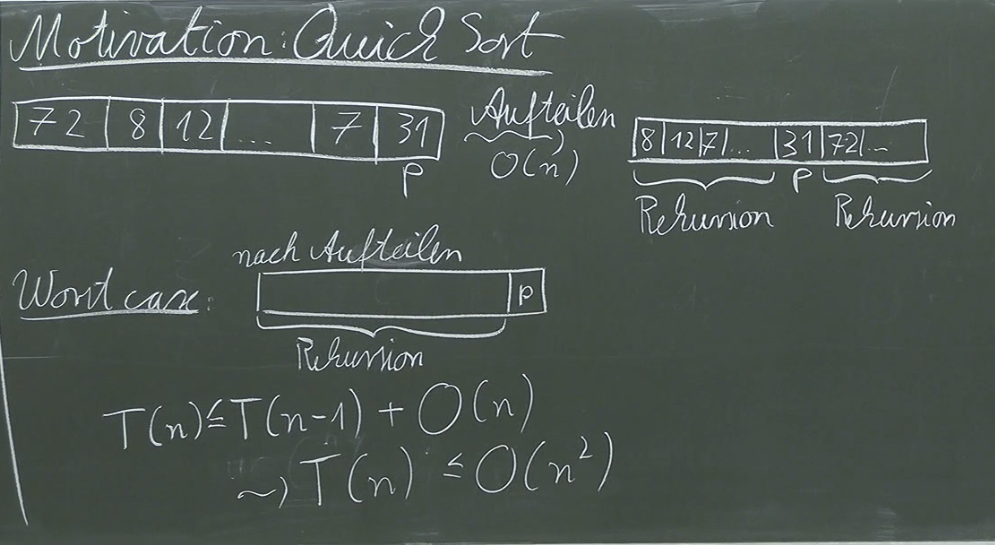 Motivation: Quick Sort
72 8 12 ... 7 31
p
Aufteilen
O(n)
8 12 7 ... 31 72 ...
p
Rekursion Rekursion
Worst case:
nach Aufteilen
p
Rekursion
T(n) ≤ T(n-1) + O(n)
~> T(n) ≤ O(n²)